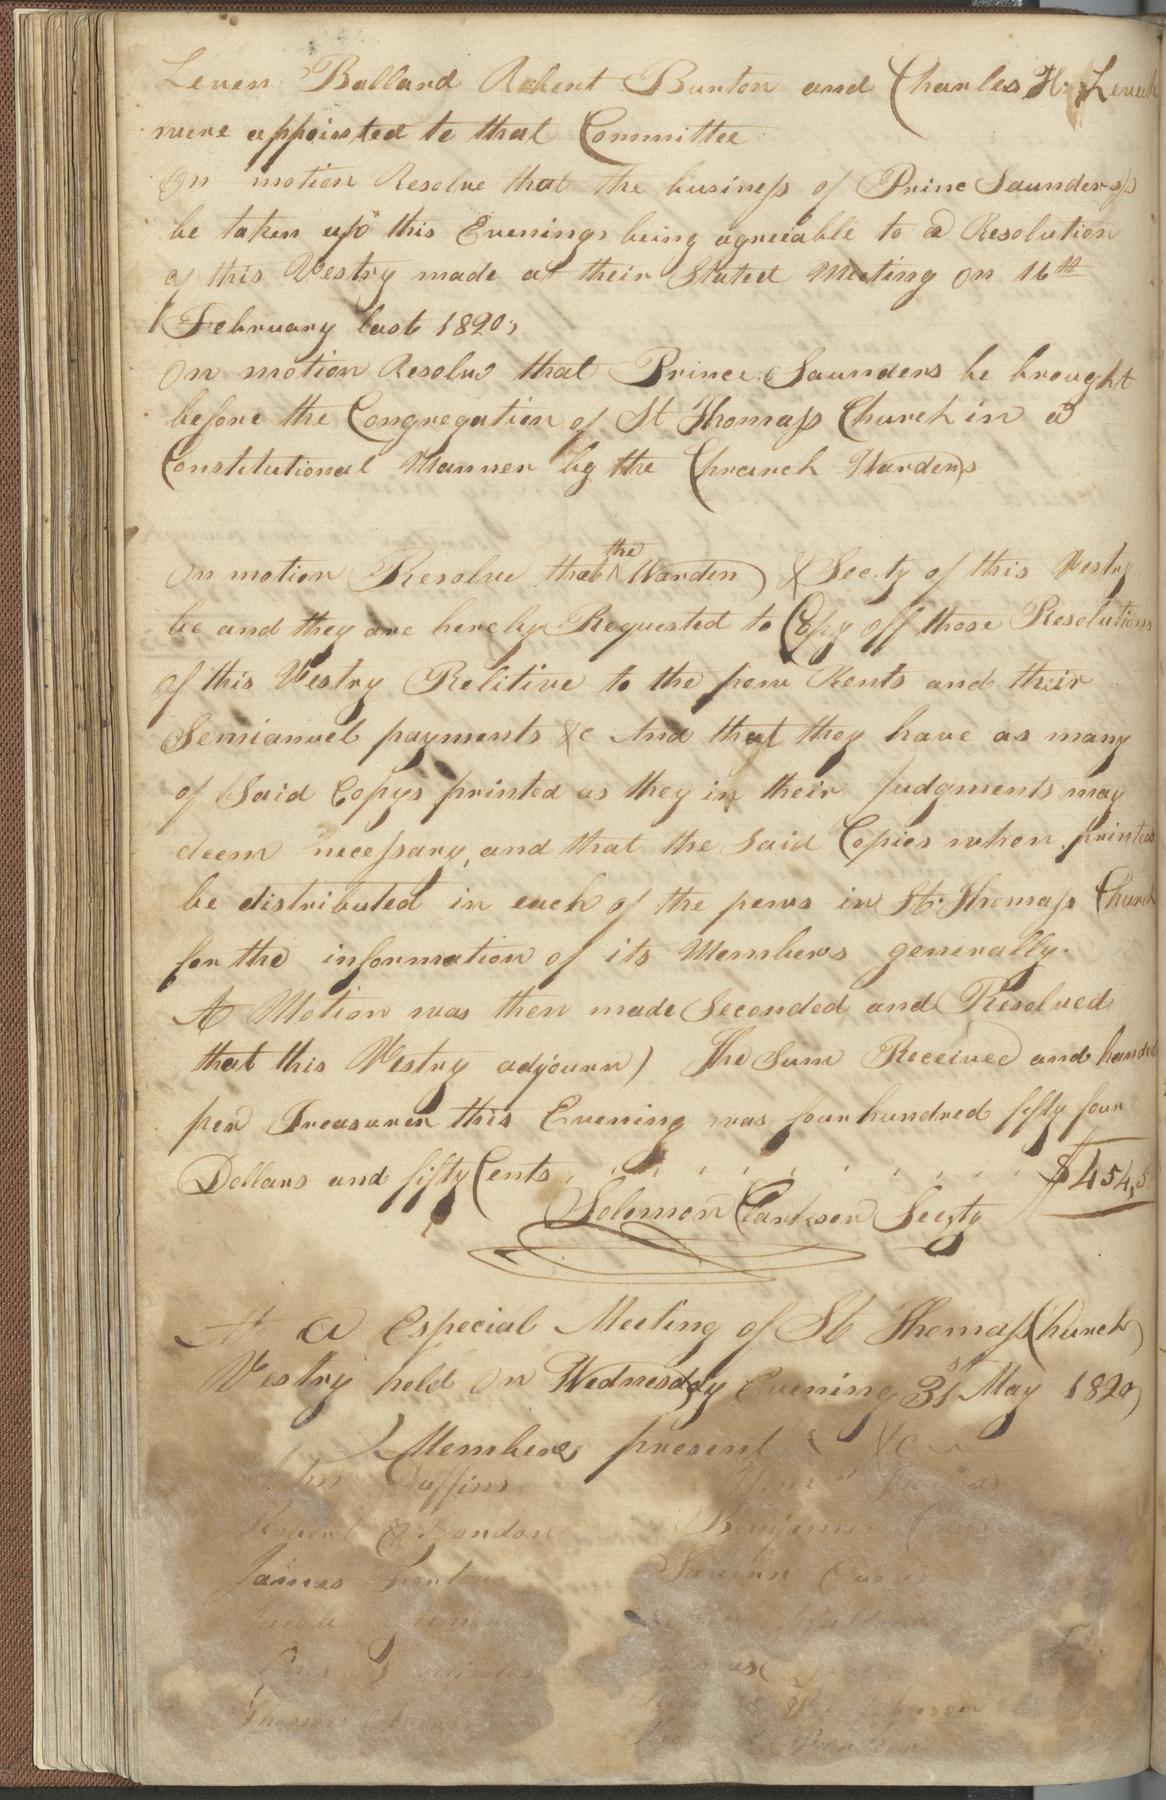 Leven Ballard Robert Burton and Charles H. Leveck
were appointed to that Committee
On motion Resolve that the business of Prince Saunders's
be taken up this Evening, being agreeable to a Resolution
of this Vestry made at their Stated Meeting on 16th
February last 1820,
On motion Resolve that Prince Saunders be brought
before the Congregation of St Thomass Church in a
Constitutional Manner by the Chrurch Wardens
On motion Resolve that the Warden & Sec.ty of this Vestry
be and they are hereby Requested to Copy off those Resolutions
of this Vestry Relitive to the pew Rents and their
Semianuel payments &c And that they have as many
of Said Copys printed as they in their Judgments may
deem necessary, and that the said Copies when printed
be distributed in each of the pews in St. Thomass Church
for the information of its Members generally.
A Motion was then made Seconded and Resolved
that this Vestry adjourn) The Sum Received and handed
per Treasurer this Evening was four hundred fifty four
Dollars and fifty Cents $454,5
Solomon Clarkson Secty
At a Especial Meeting of St Thomass Church
Vestry held on Wednesday Evening 31st May 1820
Members present &c
Duffins
Robert Gordon
James
Benjamin
Thomas
Johnson